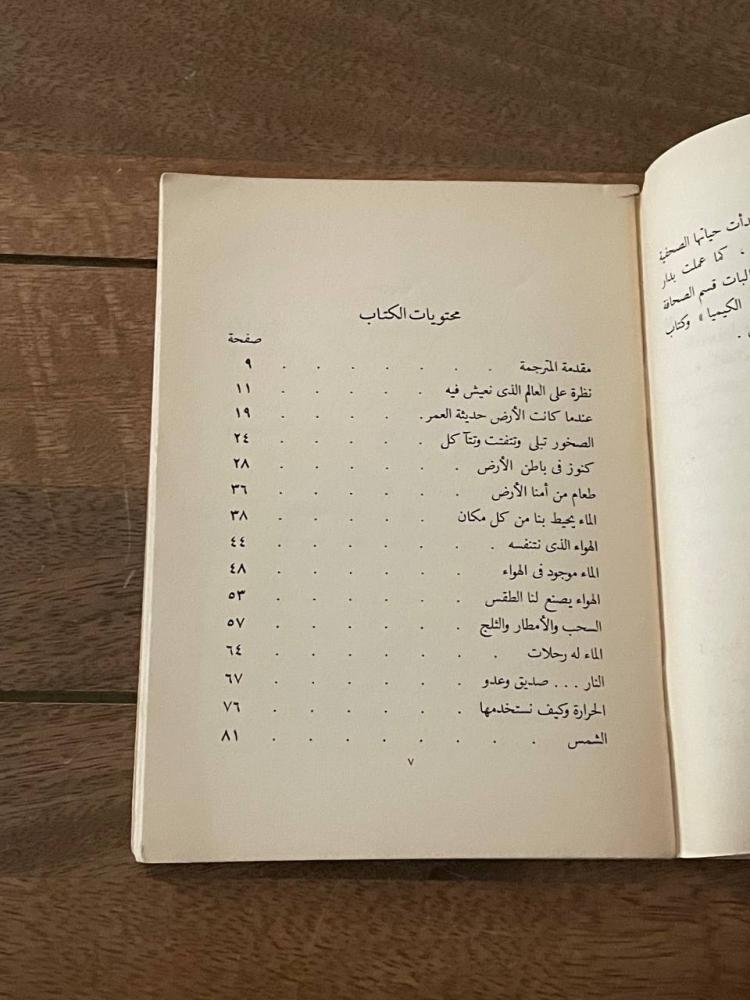 محتويات الكتاب
صفحة
مقدمة المترجمة . . . . . . . ٩
نظرة على العالم الذى نعيش فيه . . . . . ١١
عندما كانت الأرض حديثة العمر . . . . . ١٩
الصخور تبلى وتتفتت وتتآكل . . . . . ٢٤
كنوز فى باطن الأرض . . . . . . ٢٨
طعام من أمنا الأرض . . . . . . ٣٦
الماء يحيط بنا من كل مكان . . . . . ٣٨
الهواء الذى نتنفسه . . . . . . . ٤٤
الماء موجود فى الهواء . . . . . . ٤٨
الهواء يصنع لنا الطقس . . . . . . ٥٣
السحب والأمطار والثلج . . . . . . ٥٧
الماء له رحلات . . . . . . . ٦٤
النار ... صديق وعدو . . . . . . ٦٧
الحرارة وكيف نستخدمها . . . . . . ٧٦
الشمس . . . . . . . . ٨١
٧
دأت حياتها الصحفية
، كما عملت بدار
البات قسم الصحافة
الكيميا » وكتاب